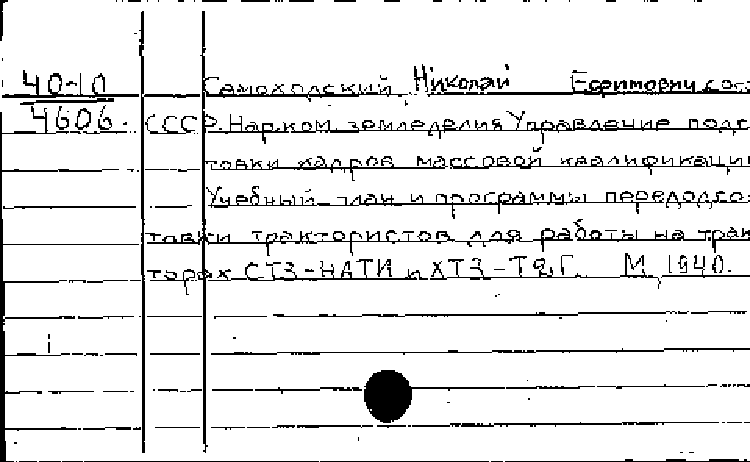 40-10 Самоходский Николай Ефимович сост
4606. СССР. Нарком земледелия Управление подго
товки кадров массовой квалификации
Учебный план и программы переподго
товки трактористов для работы на трак
торах СТЗ-НАТИ и ХТЗ-Т2Г. М, 1940.